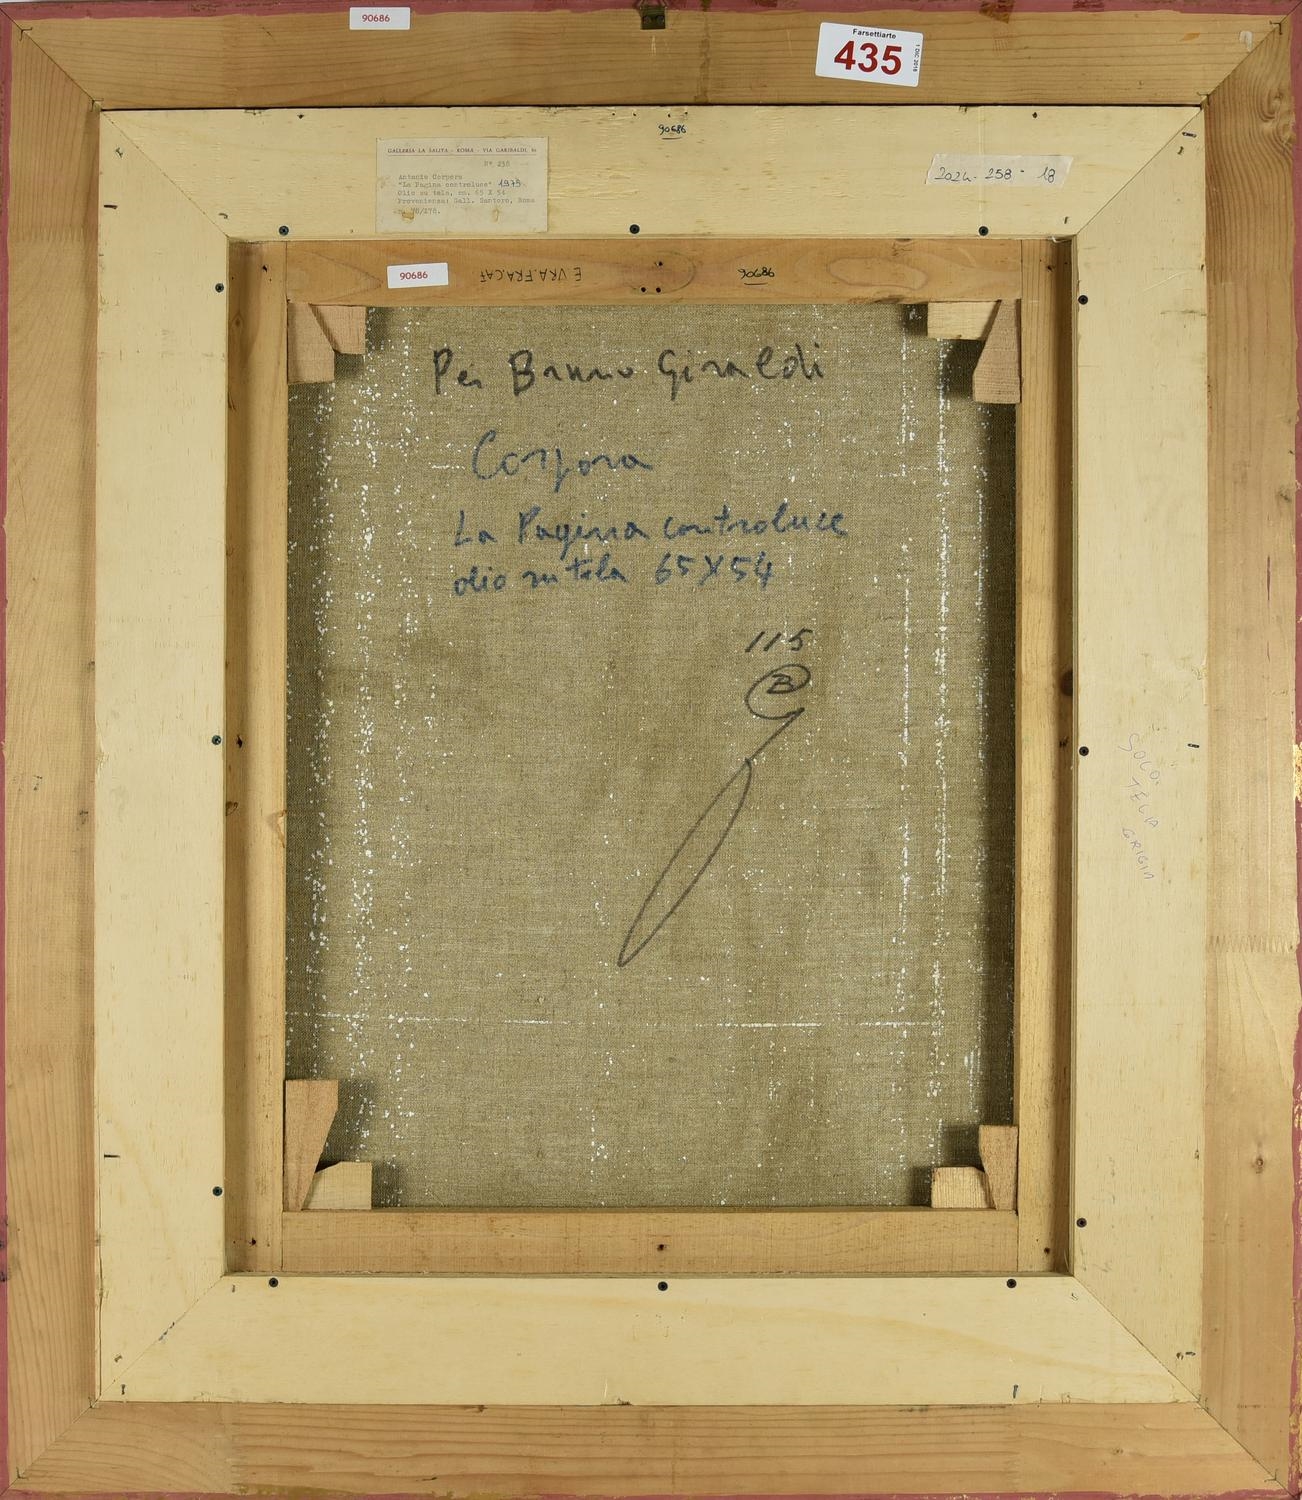 90686
Farsettiarte
435
1 DIC 2018
90686
GALLERIA LA SALITA - ROMA - VIA GARIBALDI, 86
N° 238
Antonio Corpora
"La Pagina controluce" 1975
Olio su tela, cm. 65 X 54
Provenienza: Gall. Santoro, Roma
78/278.
2024-258-18
90686
E VRA.FRA.CAT
90686
Per Bruno Giraldi
Corpora
La Pagina controluce
olio su tela 65X54
115
B
SOLO
TELA
GRIGIA